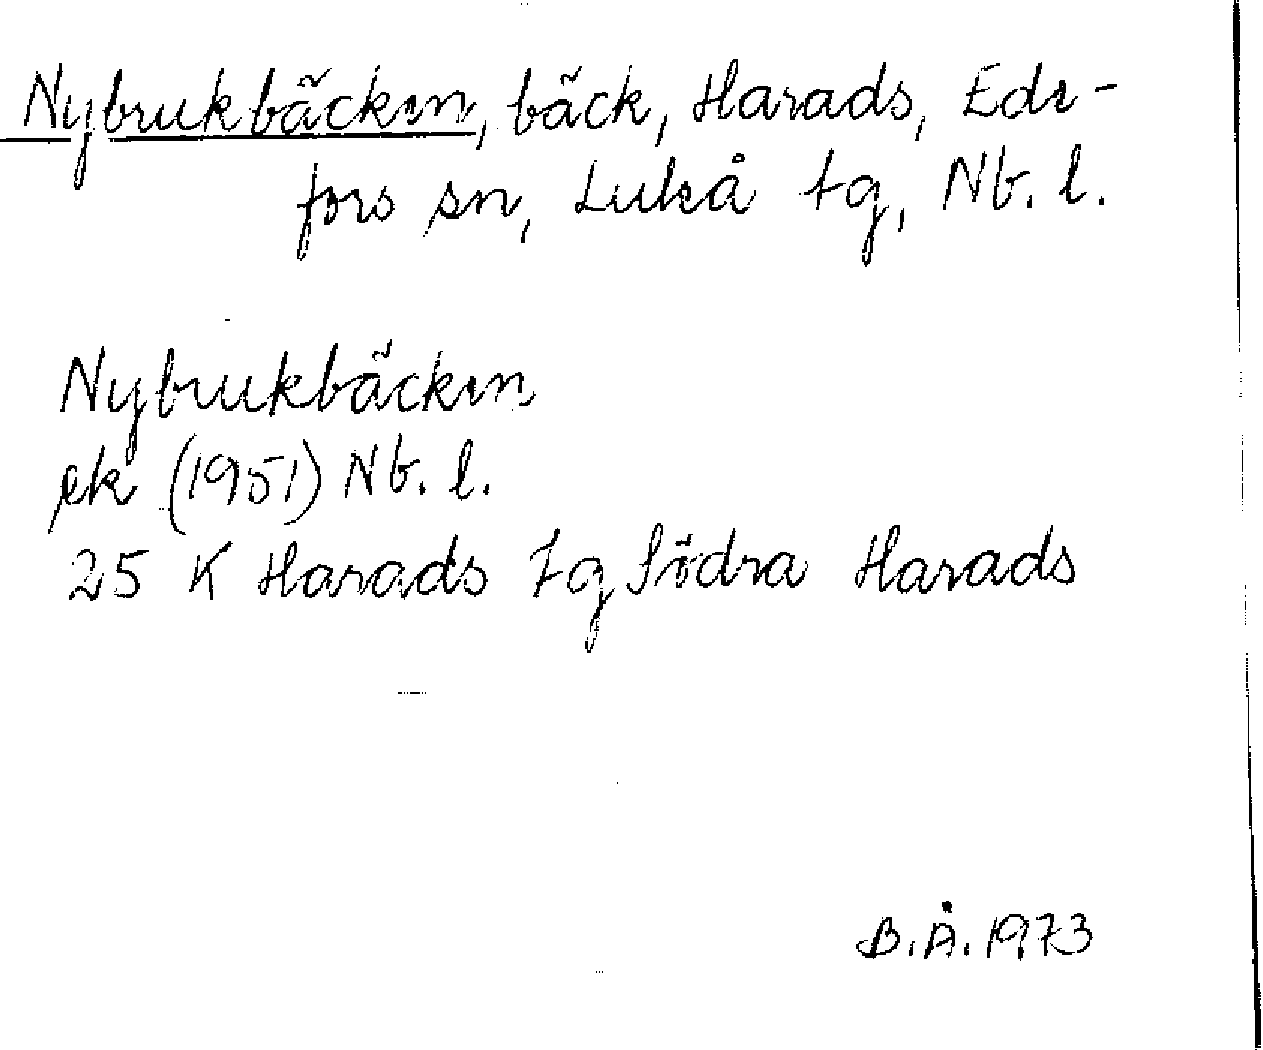 Nybrukbäcken, bäck, Harads, Ede-
fors sn, Luleå tg, Nb. l.
Nybrukbäcken
ek (1951) Nb. l.
25 K Harads tg Södra Harads
B.Å. 1973